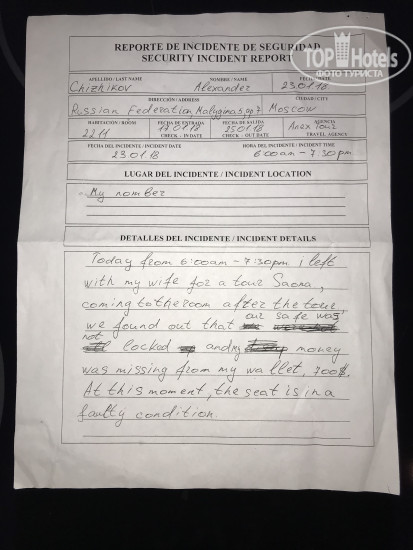 TOPHotels
ФОТО ТУРИСТА
REPORTE DE INCIDENTE DE SEGURIDAD
SECURITY INCIDENT REPORT
APELLIDO / LAST NAME NOMBRE / NAME FECHA / DATE
Chizhikov Alexander 23.01.18
DIRECCIÓN / ADDRESS CIUDAD / CITY
Russian Federation Malygina 5, 97 Moscow
HABITACIÓN / ROOM FECHA DE ENTRADA FECHA DE SALIDA AGENCIA
2211 17.01.18 25.01.18 Anex Tour
CHECK - IN DATE CHECK - OUT DATE TRAVEL AGENCY
FECHA DEL INCIDENTE / INCIDENT DATE HORA DEL INCIDENTE / INCIDENT TIME
23.01.18 6:00am - 7:30pm
LUGAR DEL INCIDENTE / INCIDENT LOCATION
My nomber
DETALLES DEL INCIDENTE / INCIDENT DETAILS
Today from 6:00am - 7:30pm i left
with my wife for a tour Saona,
coming to the room after the tour,
we found out that our safe was
not locked and my money
was missing from my wallet, 700$.
At this moment, the seat is in a
faulty condition.